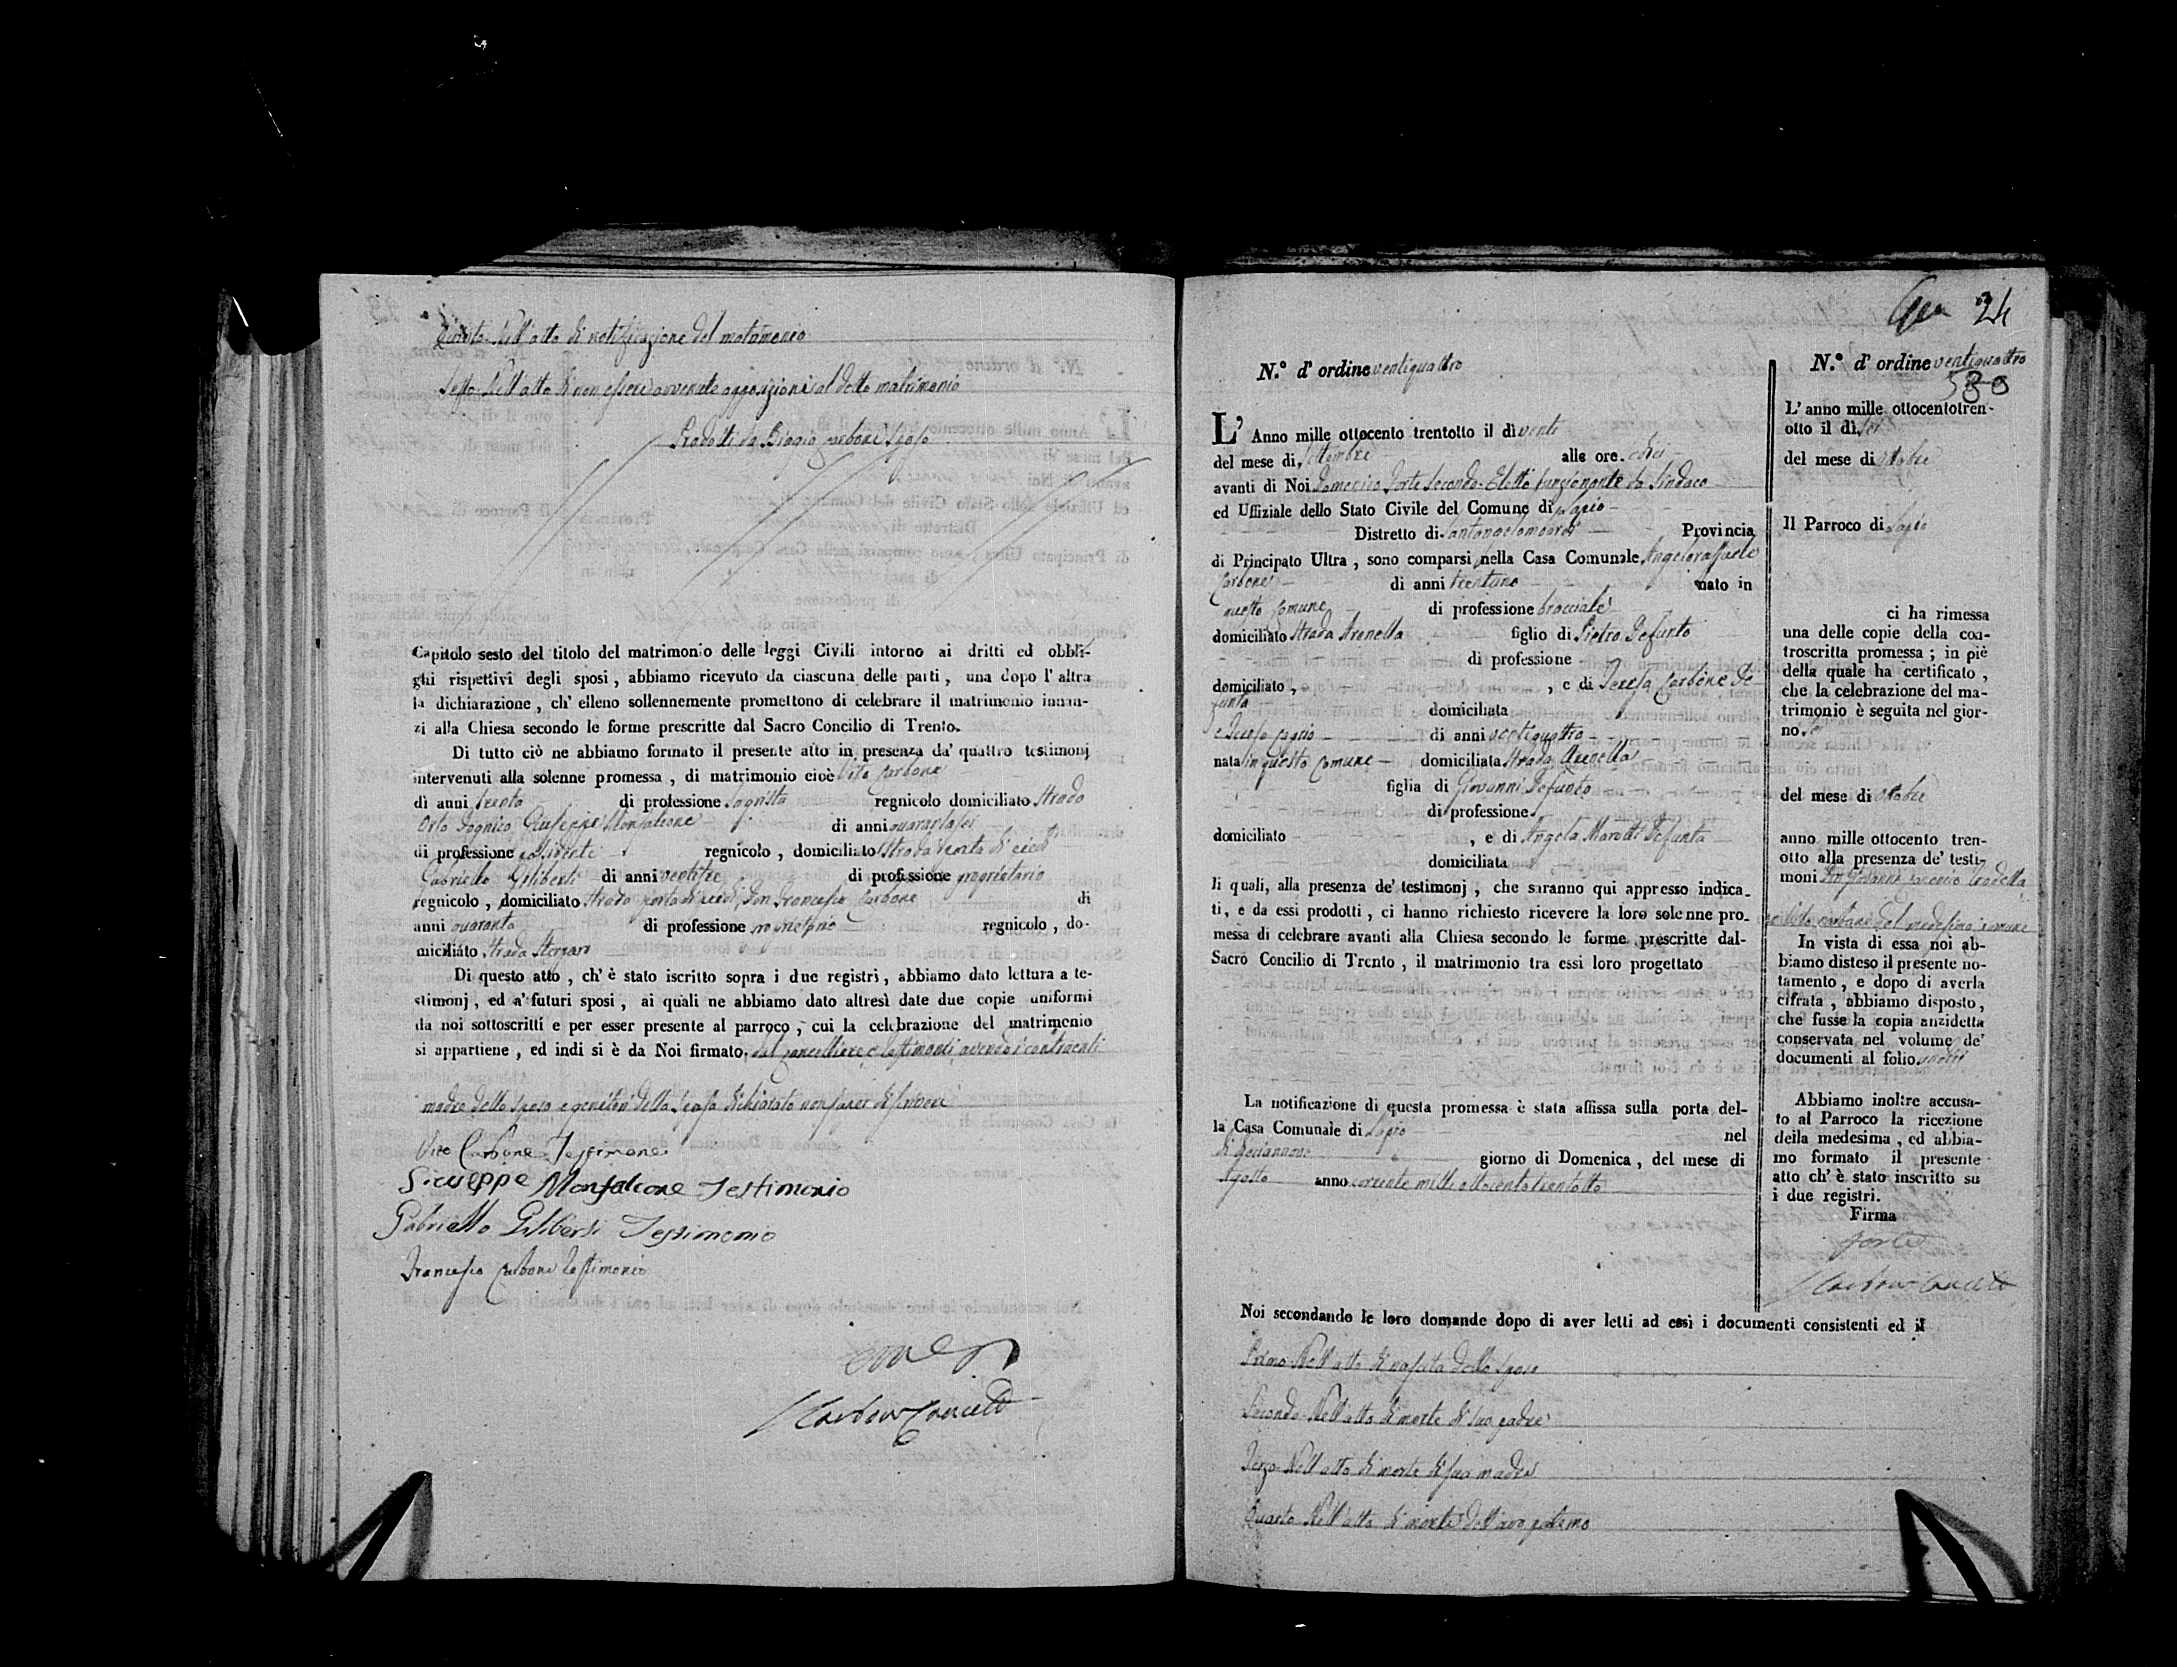 Quinto Nell'atto di notificazione del matrimonio
Sesto Nell'atto di non essere avvenute opposizioni al detto matrimonio
Prodotti da Biagio Carbone sposo
Capitolo sesto del titolo del matrimonio delle leggi Civili intorno ai dritti ed obbli-
ghi rispettivi degli sposi, abbiamo ricevuto da ciascuna delle parti, una dopo l'altra
la dichiarazione, ch'elleno sollennemente promettono di celebrare il matrimonio innan-
zi alla Chiesa secondo le forme prescritte dal Sacro Concilio di Trento.
Di tutto ciò ne abbiamo formato il presente atto in presenza da' quattro testimonj
intervenuti alla solenne promessa, di matrimonio cioè Vito Carbone
di anni trenta di professione Sagrista regnicolo domiciliato Strada
Orto Giuseppe Monfalcone di anni quarantasei
di professione regnicolo, domiciliato Strada Porta di
Gabriello Giliberti di anni ventitre di professione proprietario
regnicolo, domiciliato Strada porta di Don Francesco Carbone di
anni quaranta di professione proprietario regnicolo, do-
miciliato Strada
Di questo atto, ch'è stato iscritto sopra i due registri, abbiamo dato lettura a te-
stimonj, ed a' futuri sposi, ai quali ne abbiamo dato altresì date due copie uniformi
da noi sottoscritti e per esser presente al parroco, cui la celebrazione del matrimonio
si appartiene, ed indi si è da Noi firmato, dal Cancelliere e testimonti avendo i contraenti
madre dello sposo e genitori della sposa dichiarato non saper scrivere
Vito Carbone Testimone
Giuseppe Monfalcone Testimonio
Gabriello Giliberti Testimonio
Francesco Carbone testimonio
Carbone Cancell
24
N.° d'ordine ventiquattro
L'Anno mille ottocento trentotto il dì venti
del mese di Settembre alle ore
avanti di Noi Domenico Forte Secondo Eletto funzionante da Sindaco
ed Uffiziale dello Stato Civile del Comune di Lapio
Distretto di Santangelolombardi Provincia
di Principato Ultra, sono comparsi nella Casa Comunale Angeloraffaele
Carbone di anni trentuno nato in
questo Comune di professione bracciale
domiciliato Strada Arenella figlio di Pietro Defunto
di professione
domiciliato, , e di Teresa Carbone De-
funta domiciliata
e di anni ventiquattro
nata in questo Comune domiciliata Strada Arenella
figlia di Giovanni Defunto
di professione
domiciliato , e di Angela Defunta
domiciliata
li quali, alla presenza de' testimonj, che saranno qui appresso indica-
ti, e da essi prodotti, ci hanno richiesto ricevere la loro solenne pro-
messa di celebrare avanti alla Chiesa secondo le forme prescritte dal
Sacro Concilio di Trento, il matrimonio tra essi loro progettato
La notificazione di questa promessa è stata affissa sulla porta del-
la Casa Comunale di Lapio nel
dì diciannove giorno di Domenica, del mese di
Agosto anno corrente mille ottocento trentotto
Noi secondando le loro domande dopo di aver letti ad essi i documenti consistenti ed il
Primo Nell'atto di nascita dello sposo
Secondo Nell'atto di morte di suo padre
Terzo Nell'atto di morte di sua madre
Quarto Nell'atto di morte dell'avo paterno
N.° d'ordine ventiquattro
L'anno mille ottocentotren-
otto il dì sei
del mese di Ottobre
Il Parroco di Lapio
ci ha rimessa
una delle copie della con-
troscritta promessa; in piè
della quale ha certificato,
che la celebrazione del ma-
trimonio è seguita nel gior-
no
del mese di Ottobre
anno mille ottocento tren-
otto alla presenza de' testi-
moni Don Giovanni
e Vito Carbone del medesimo Comune
In vista di essa noi ab-
biamo disteso il presente no-
tamento, e dopo di averla
cifrata, abbiamo disposto,
che fusse la copia anzidetta
conservata nel volume de'
documenti al folio
Abbiamo inoltre accusa-
to al Parroco la ricezione
della medesima, ed abbia-
mo formato il presente
atto ch'è stato inscritto su
i due registri.
Firma
Forte
Carbone Cancell